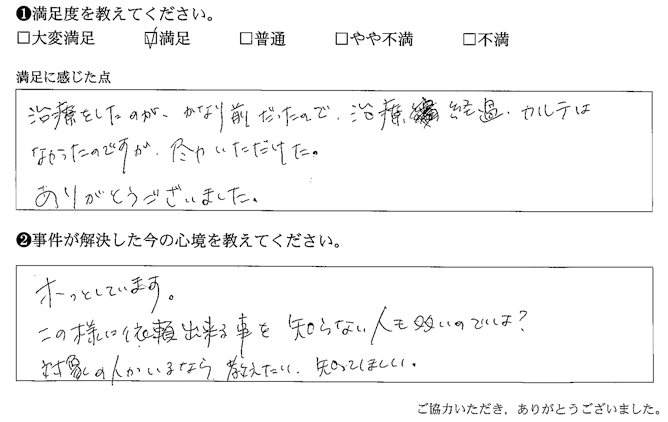 ❶満足度を教えてください。
□大変満足 ☑満足 □普通 □やや不満 □不満
満足に感じた点
治療をしたのが、かなり前だったので、治療経過、カルテは
なかったのですが、尽力いただけた。
ありがとうございました。
❷事件が解決した今の心境を教えてください。
ホーっとしています。
この様に依頼出来る事を知らない人も多いのでは？
対象の人がいるなら教えたい、知ってほしい。
ご協力いただき、ありがとうございました。